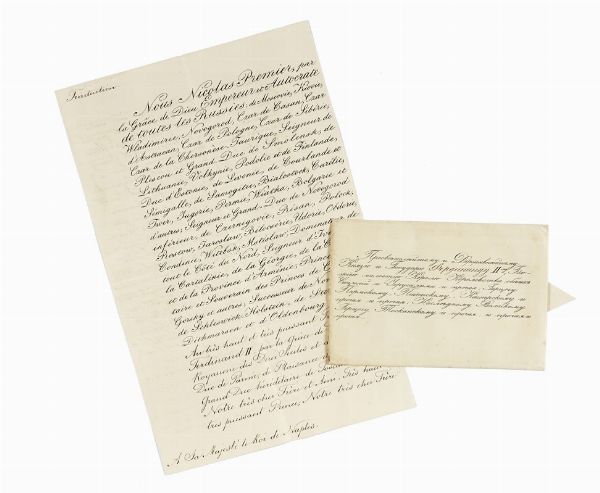 Traduction.
Nous Nicolas Premier, par
la Grâce de Dieu Empereur et Autocrate
de toutes les Russies, de Moscovie, Kiovie,
Wladimirie, Novogorod, Czar de Casan, Czar
d'Astracan, Czar de Pologne, Czar de Sibérie,
Czar de la Chersonèse Taurique, Seigneur de
Plescou et Grand-Duc de Smolensk, de
Lithuanie, Volhynie, Podolie et de Finlande,
Duc d'Estonie, de Livonie, de Courlande et
Semigalle, de Samogitie, Bialostock, Carélie,
Twer, Jugorie, Permie, Wiatka, Bolgarie et
d'autres; Seigneur et Grand-Duc de Novogorod
inférieur, de Czernigovie, Résan, Polock,
Rostow, Jaroslaw, Béloosérie, Udorie, Obdorie,
Condinie, Witebsk, Mstislaw, Dominateur de
tout le Côté du Nord, Seigneur
la Cartalinie, de la Géorgie, de la
et de la Province d'Arménie; Prince
taire et Souverain des Princes de
Gorsky et autres; Successeur de
de Schleswick-Holstein, de
Dithmarsen et d'Oldenbourg
Au très haut et très puissant
Ferdinand II par la Grâce de
Royaume des Deux Siciles et
Duc de Parme, de Plaisance
Grand Duc héréditaire de
Notre très cher Frère et Ami. Très haut
très puissant Prince, Notre très cher Frère
A Sa Majesté le Roi de Naples.
Пресветлейшему и Державнейшему
Князю и Государю Фердинанду II
Сицилии и Иерусалима и прочая, Герцогу
Пармскому
прочая и прочая, Великому
Герцогу Тосканскому и прочая и прочая
прочая.